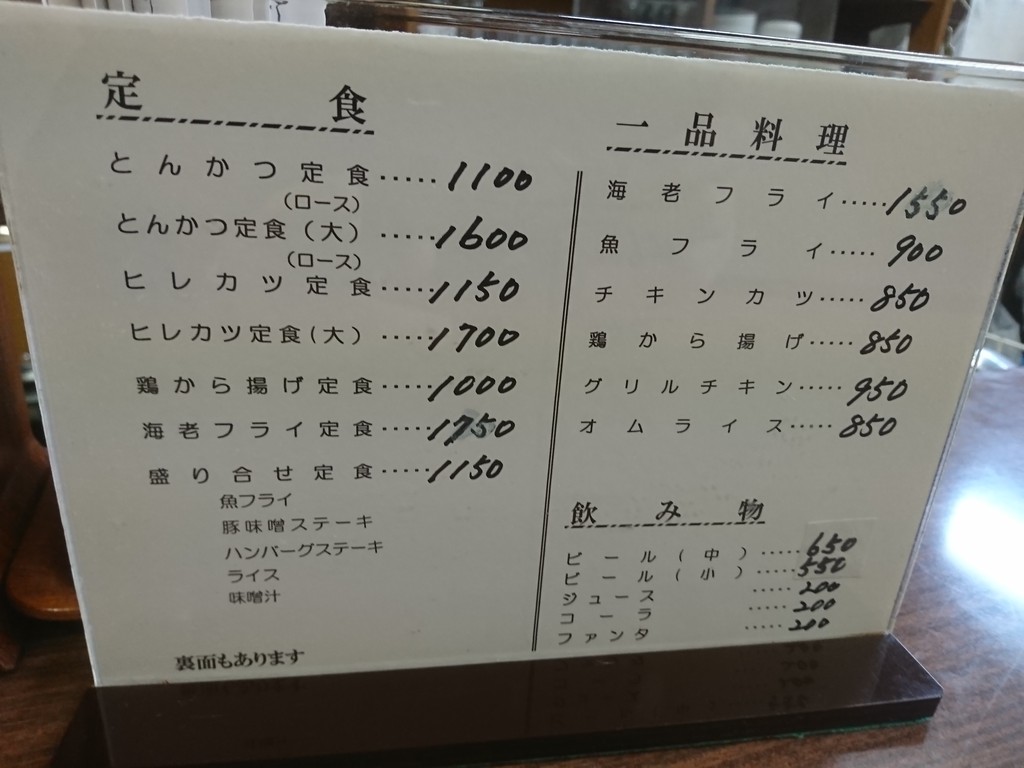 定食
とんかつ定食・・・・・1100
（ロース）
とんかつ定食（大）・・・・・1600
（ロース）
ヒレカツ定食・・・・・1150
ヒレカツ定食（大）・・・・・1700
鶏から揚げ定食・・・・・1000
海老フライ定食・・・・・1750
盛り合せ定食・・・・・1150
魚フライ
豚味噌ステーキ
ハンバーグステーキ
ライス
味噌汁
裏面もあります
一品料理
海老フライ・・・・・1550
魚フライ・・・・・900
チキンカツ・・・・・850
鶏から揚げ・・・・・850
グリルチキン・・・・・950
オムライス・・・・・850
飲み物
ビール（中）・・・・・650
ビール（小）・・・・・550
ジュース・・・・・200
コーラ・・・・・200
ファンタ・・・・・200